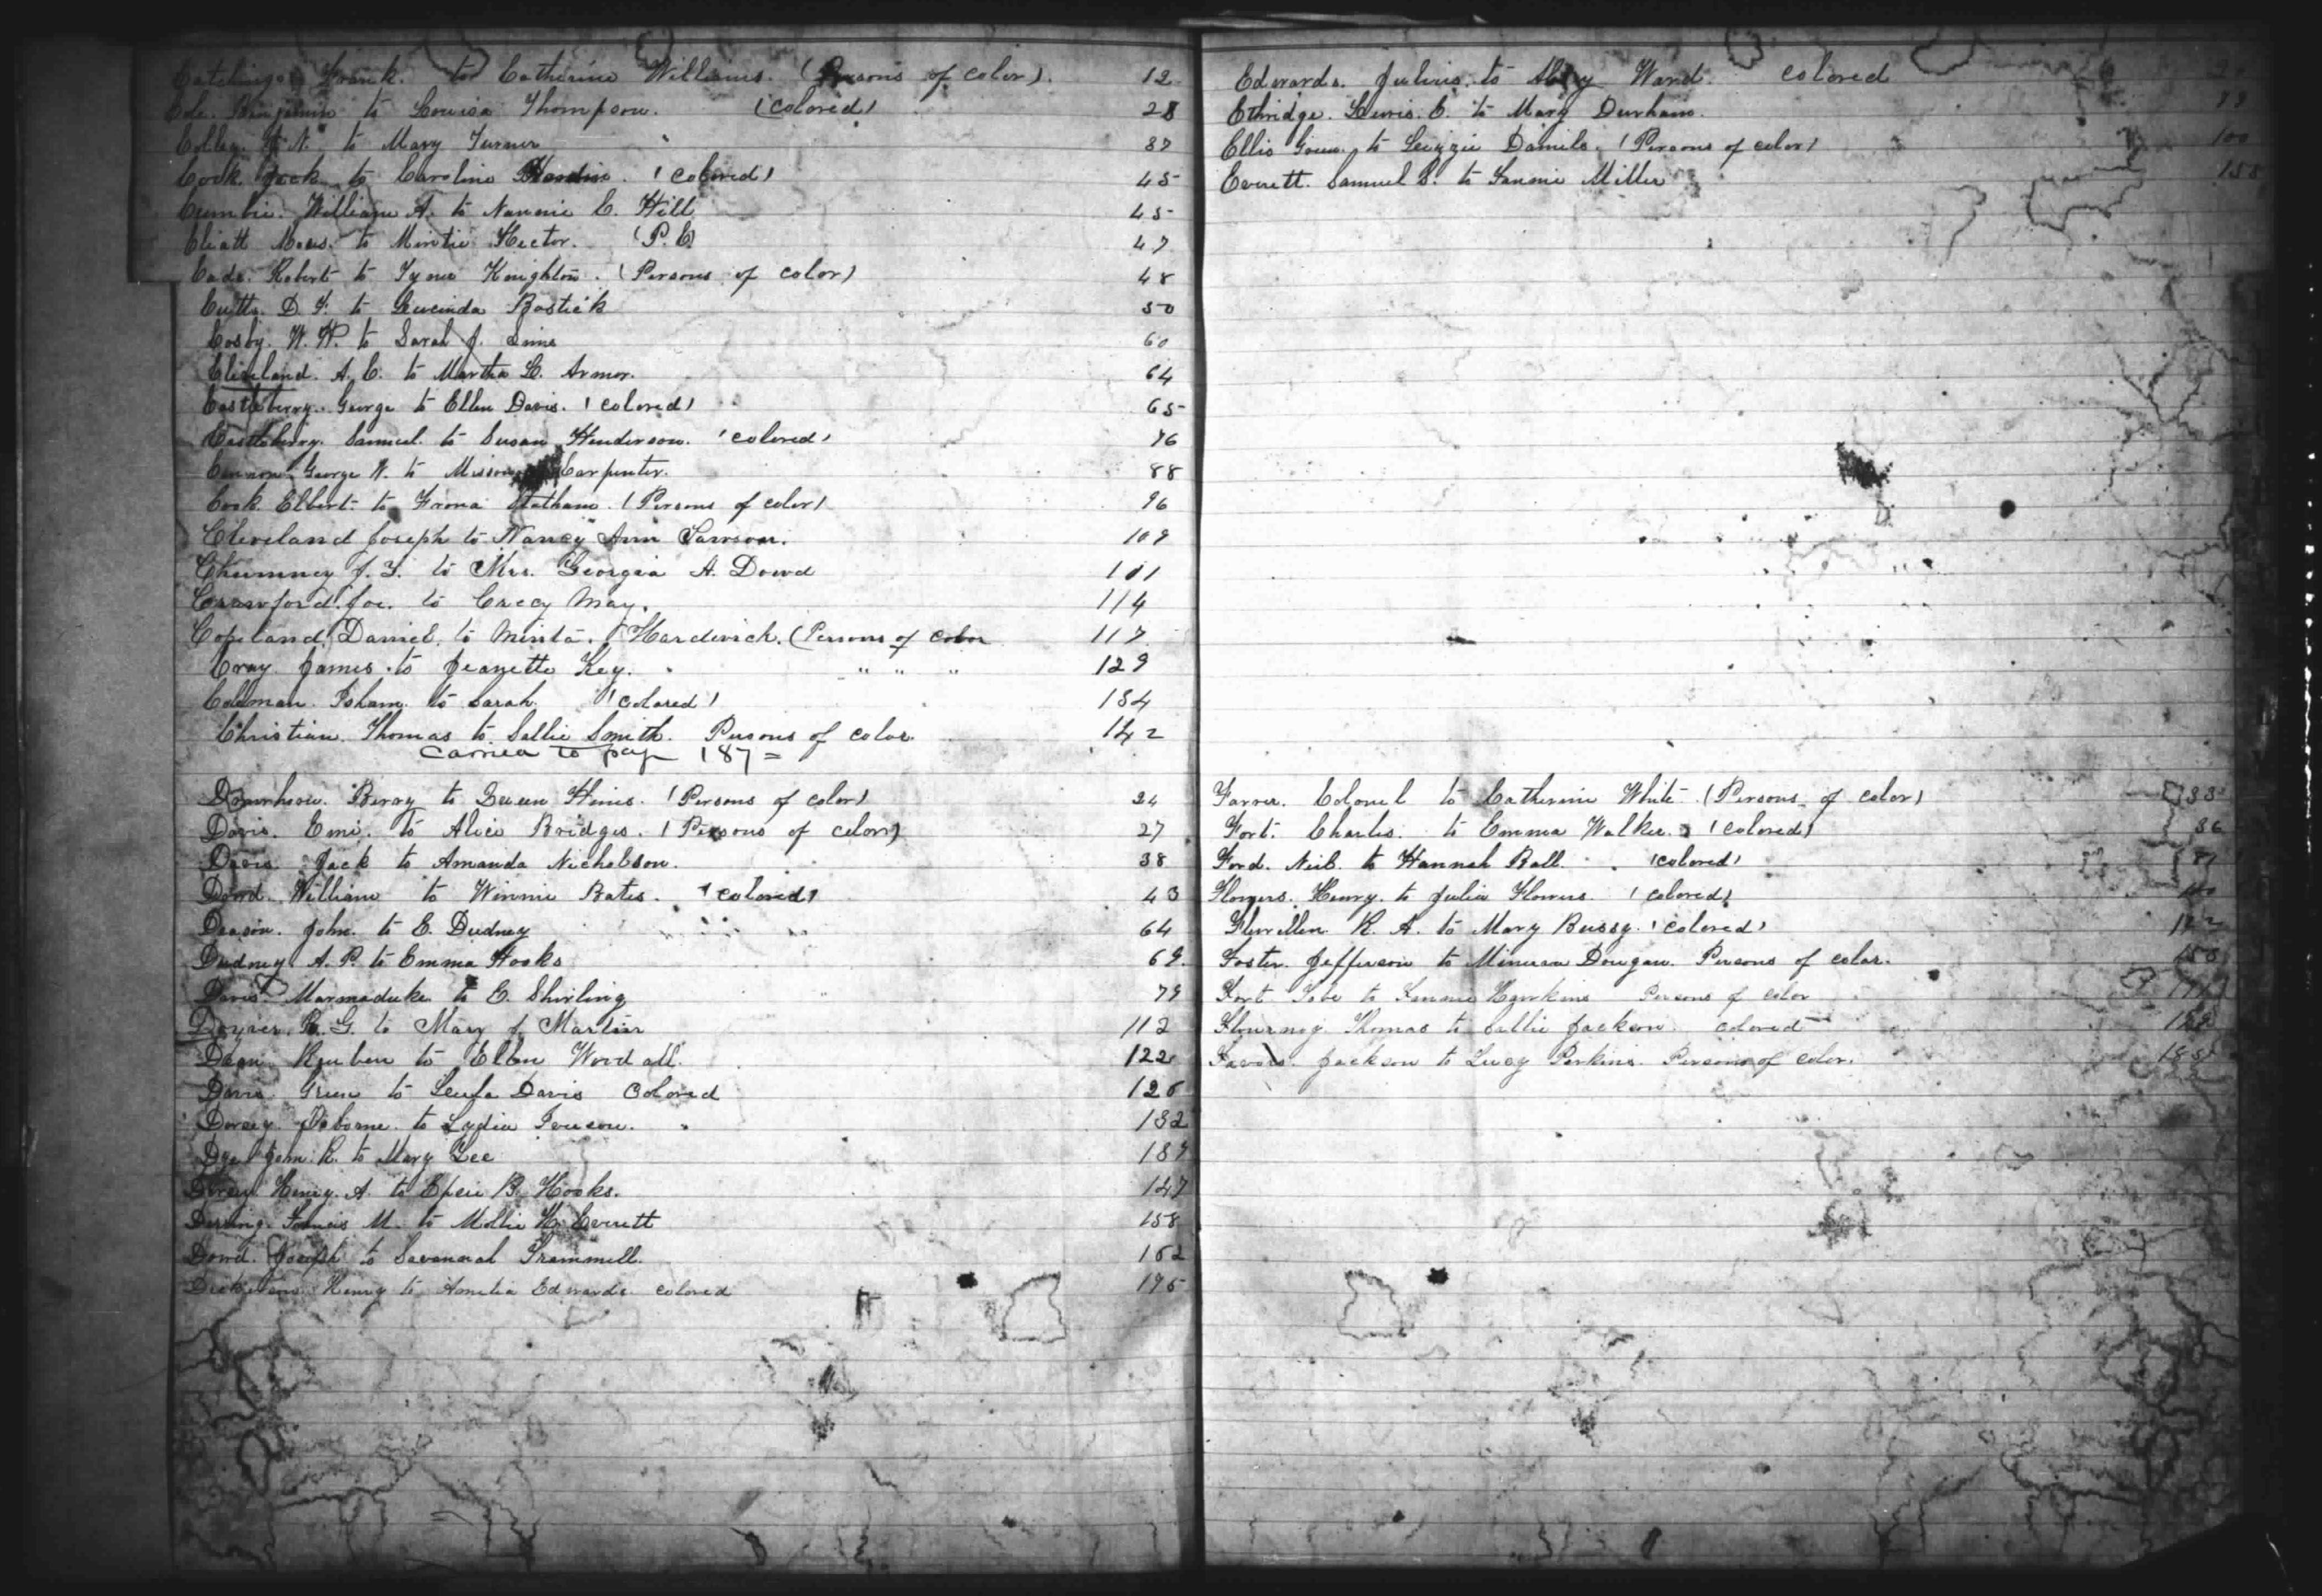 Catchings Frank. to Catherine Williams. (Persons of color). 12
Cole. Benjamin to Louisa Thompson. (colored) 28
Colley. N. to Mary Turner 37
Cook Jack to Caroline Hardin. (colored) 45
Cumbie. William A. to Nannie C. Hill 45
Cliatt Moses. to Mintie Hector. (P. C) 47
Cade. Robert to Knighton. (Persons of color) 48
Cutts. D. F. to Lucinda Bostick 50
Cosby. W. W. to Sarah J. Sims 60
Cleveland. A. C. to Martha L. Armor. 64
Castleberry. George to Ellen Davis. (colored) 65
Castleberry. Samuel to Susan Henderson. (colored) 76
Cannon George W. to Carpenter. 88
Cook Elbert to Statham. (Persons of color) 96
Cleveland Joseph to Nancy Ann 109
Chumney J. F. to Mrs. Georgia A. Dowd 111
Crawford. Joe. to Creecy May. 114
Copeland. Daniel, to Minta. Hardwick. (Persons of color 117
Cray James to Jeanette Key. " " " 129
Coleman. Isham to Sarah. (colored) 134
Christian. Thomas to Sallie Smith. Persons of color 142
Carried to page 187 =
Berry to Queen Hines. (Persons of color) 24
Davis. to Alice Bridges. (Persons of color) 27
Davis Jack to Amanda Nicholson. 38
Dowd. William to Winnie Bates. (colored) 43
Deason. John. to E. Dudney 64
Dudney A. P. to Emma Hooks 69
Davis Marmaduke to E. Shirling 79
Dozier. R. G. to Mary J. Martin 112
Dean Reuben to Ellen Woodall. 122
Davis Green to Davis Colored 126
Dorsey Osborne. to Lydia 132
Dye John. R. to Mary Lee 137
Henry. A. to B. Hooks. 147
Francis M. to Mollie H. Everett 158
Dowd. Joseph to Savannah Trammell. 162
Henry to Amelia Edwards colored 196
Edwards. Julius. to Ward. colored
Ethridge. Lewis. C. to Mary Durham.
Ellis Green. to Lizzie Daniels. (Persons of color) 100
Everett. Samuel S. to Fannie Miller 158
Farrer. Colonel to Catherine White. (Persons of color) 33
Fort. Charles. to Emma Walker. (colored) 36
Ford. Neil. to Hannah Ball. (colored)
Flowers. Henry. to Julia Flowers. (colored)
Flewellen R. A. to Mary Bussy. (colored)
Foster Jefferson to Dougan. Persons of color.
Fort to Fannie Hawkins Persons of color
Flournoy Thomas to Sallie Jackson. colored
Jackson to Lucy Perkins. Persons of color.